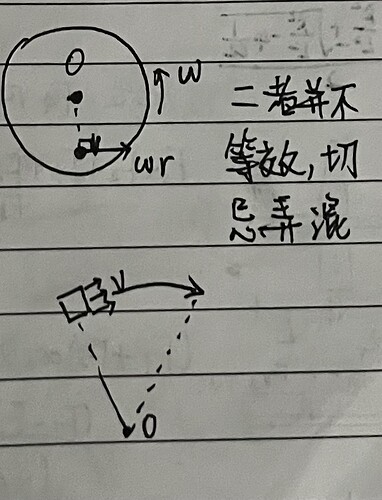 O
w
二者并不
v
wr
等效,切
忌弄混
v
O